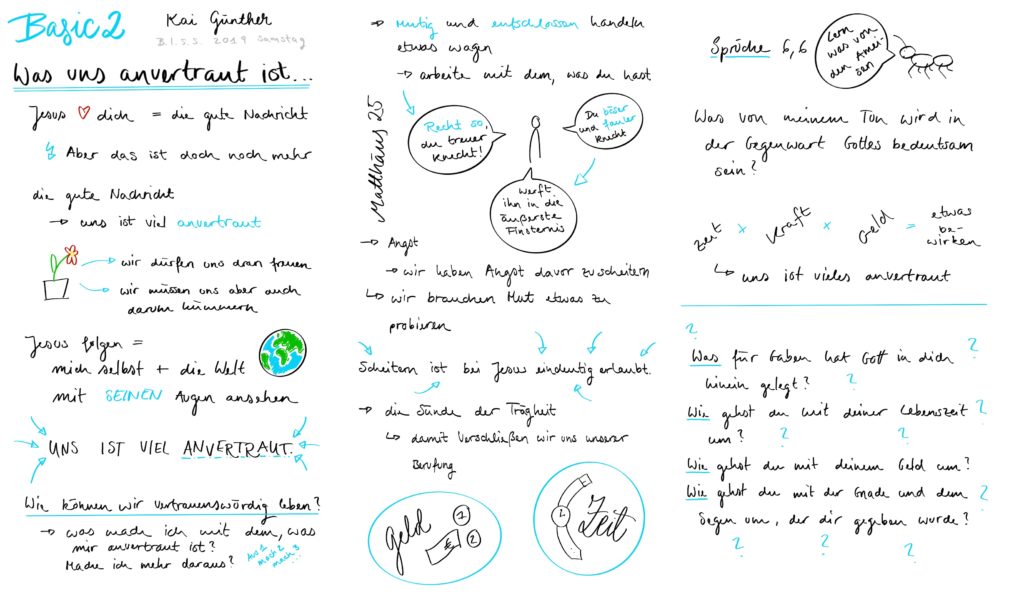 Basic 2
Kai Günther
B.I.S.S. 2019 Samstag
Was uns anvertraut ist...
Jesus ♡ dich = die gute Nachricht
Aber das ist doch noch mehr
die gute Nachricht
→ uns ist viel anvertraut
→ wir dürfen uns dran freuen
→ wir müssen uns aber auch
darum kümmern
Jesus folgen =
mich selbst + die Welt
mit SEINEN Augen ansehen
UNS IST VIEL ANVERTRAUT.
Wie können wir vertrauenswürdig leben?
→ was mache ich mit dem, was
mir anvertraut ist?
Mache ich mehr daraus?
Aus 1
mach 2
mach 3
...
→ Mutig und entschlossen handeln
etwas wagen
→ arbeite mit dem, was du hast
Matthäus 25
Recht so,
du treuer
Knecht!
Du böser
und fauler
Knecht
Werft
ihn in die
äußerste
Finsternis
→ Angst
→ wir haben Angst davor zu scheitern
↳ wir brauchen Mut etwas zu
probieren
Scheitern ist bei Jesus eindeutig erlaubt.
→ die Sünde der Trägheit
↳ damit verschließen wir uns unserer
Berufung
Geld
1
2
€
Zeit
Sprüche 6,6
Lern
was von
den Amei-
sen
Was von meinem Tun wird in
der Gegenwart Gottes bedeutsam
sein?
Zeit × Kraft × Geld = etwas
be-
wirken
↳ uns ist vieles anvertraut
?
Was für Gaben hat Gott in dich ?
hinein gelegt? ?
Wie gehst du mit deiner Lebenszeit ?
um? ? ?
Wie gehst du mit deinem Geld um?
Wie gehst du mit der Gnade und dem ?
Segen um, der dir gegeben wurde?
? ? ?